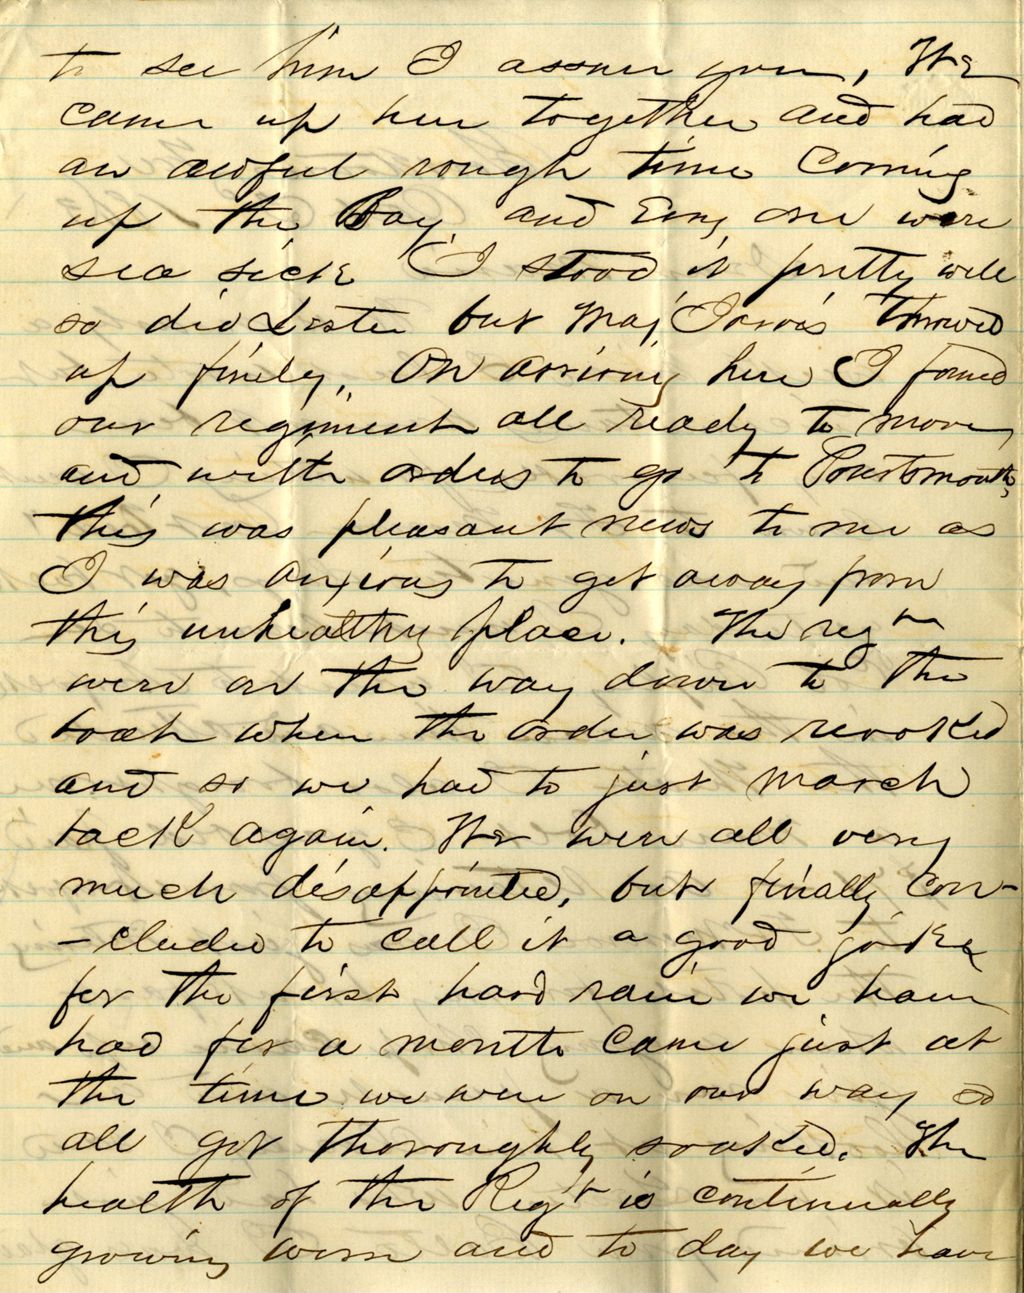 to see him I assure you, We
came up here together and had
an awful rough time coming
up the Bay, and Every one were
sea sick I stood it pretty well
so did Lester but Maj Jarvis throwed
up finely. On arriving here I found
our regiment all ready to move
and with orders to go to Pourtsmouth,
this was pleasant news to me as
I was anxious to get away from
this unhealthy place. The regtm
were on the way down to the
boat when the order was revoked
and so we had to just march
back again. We were all very
much disappointed, but finally con-
-cluded to call it a good joke
for the first hard rain we have
had for a month came just at
the time we were on our way so
all got thoroughly soaked. The
health of the Regt is continually
growing worse and to day we have